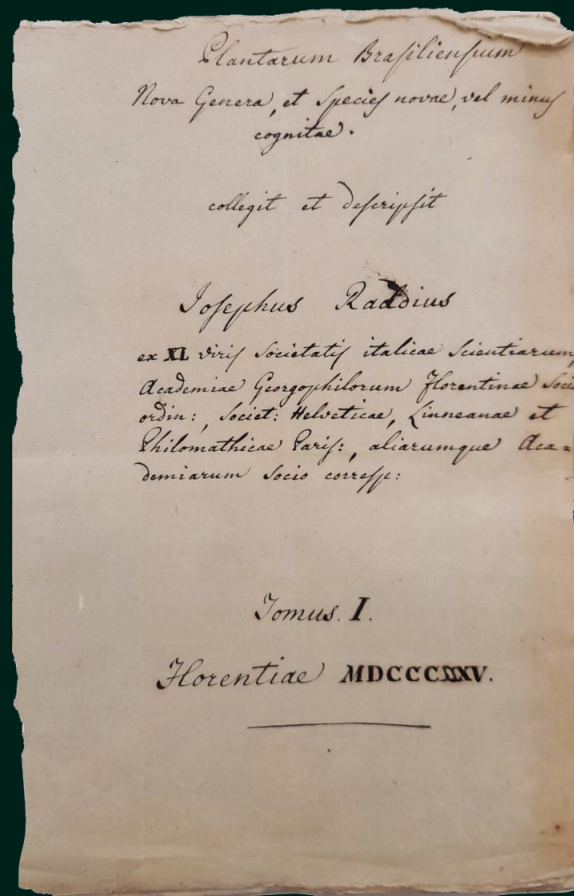 Plantarum Brasiliensium
Nova Genera, et Species novae, vel minus
cognitae.
collegit et descripsit
Josephus Raddius
ex XL viris Societatis italicae Scientiarum,
Academiae Georgophilorum Florentinae Soci
ordin:, Societ: Helveticae, Linneanae et
Philomathicae Paris:, aliarumque Aca=
demiarum Socio corresp:
Tomus. I.
Florentiae MDCCCXXV.